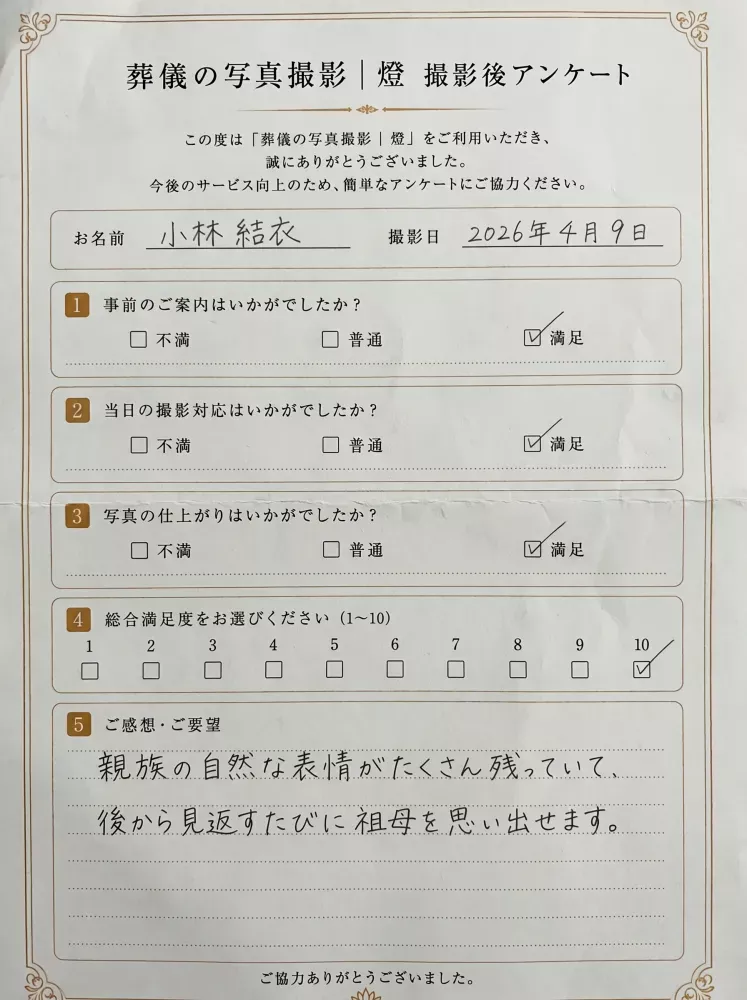 葬儀の写真撮影｜燈 撮影後アンケート
この度は「葬儀の写真撮影｜燈」をご利用いただき、
誠にありがとうございました。
今後のサービス向上のため、簡単なアンケートにご協力ください。
お名前 小林 結衣 撮影日 2026年4月9日
1 事前のご案内はいかがでしたか？
不満 普通 満足
2 当日の撮影対応はいかがでしたか？
不満 普通 満足
3 写真の仕上がりはいかがでしたか？
不満 普通 満足
4 総合満足度をお選びください（1〜10）
1 2 3 4 5 6 7 8 9 10
5 ご感想・ご要望
親族の自然な表情がたくさん残っていて、
後から見返すたびに祖母を思い出せます。
ご協力ありがとうございました。